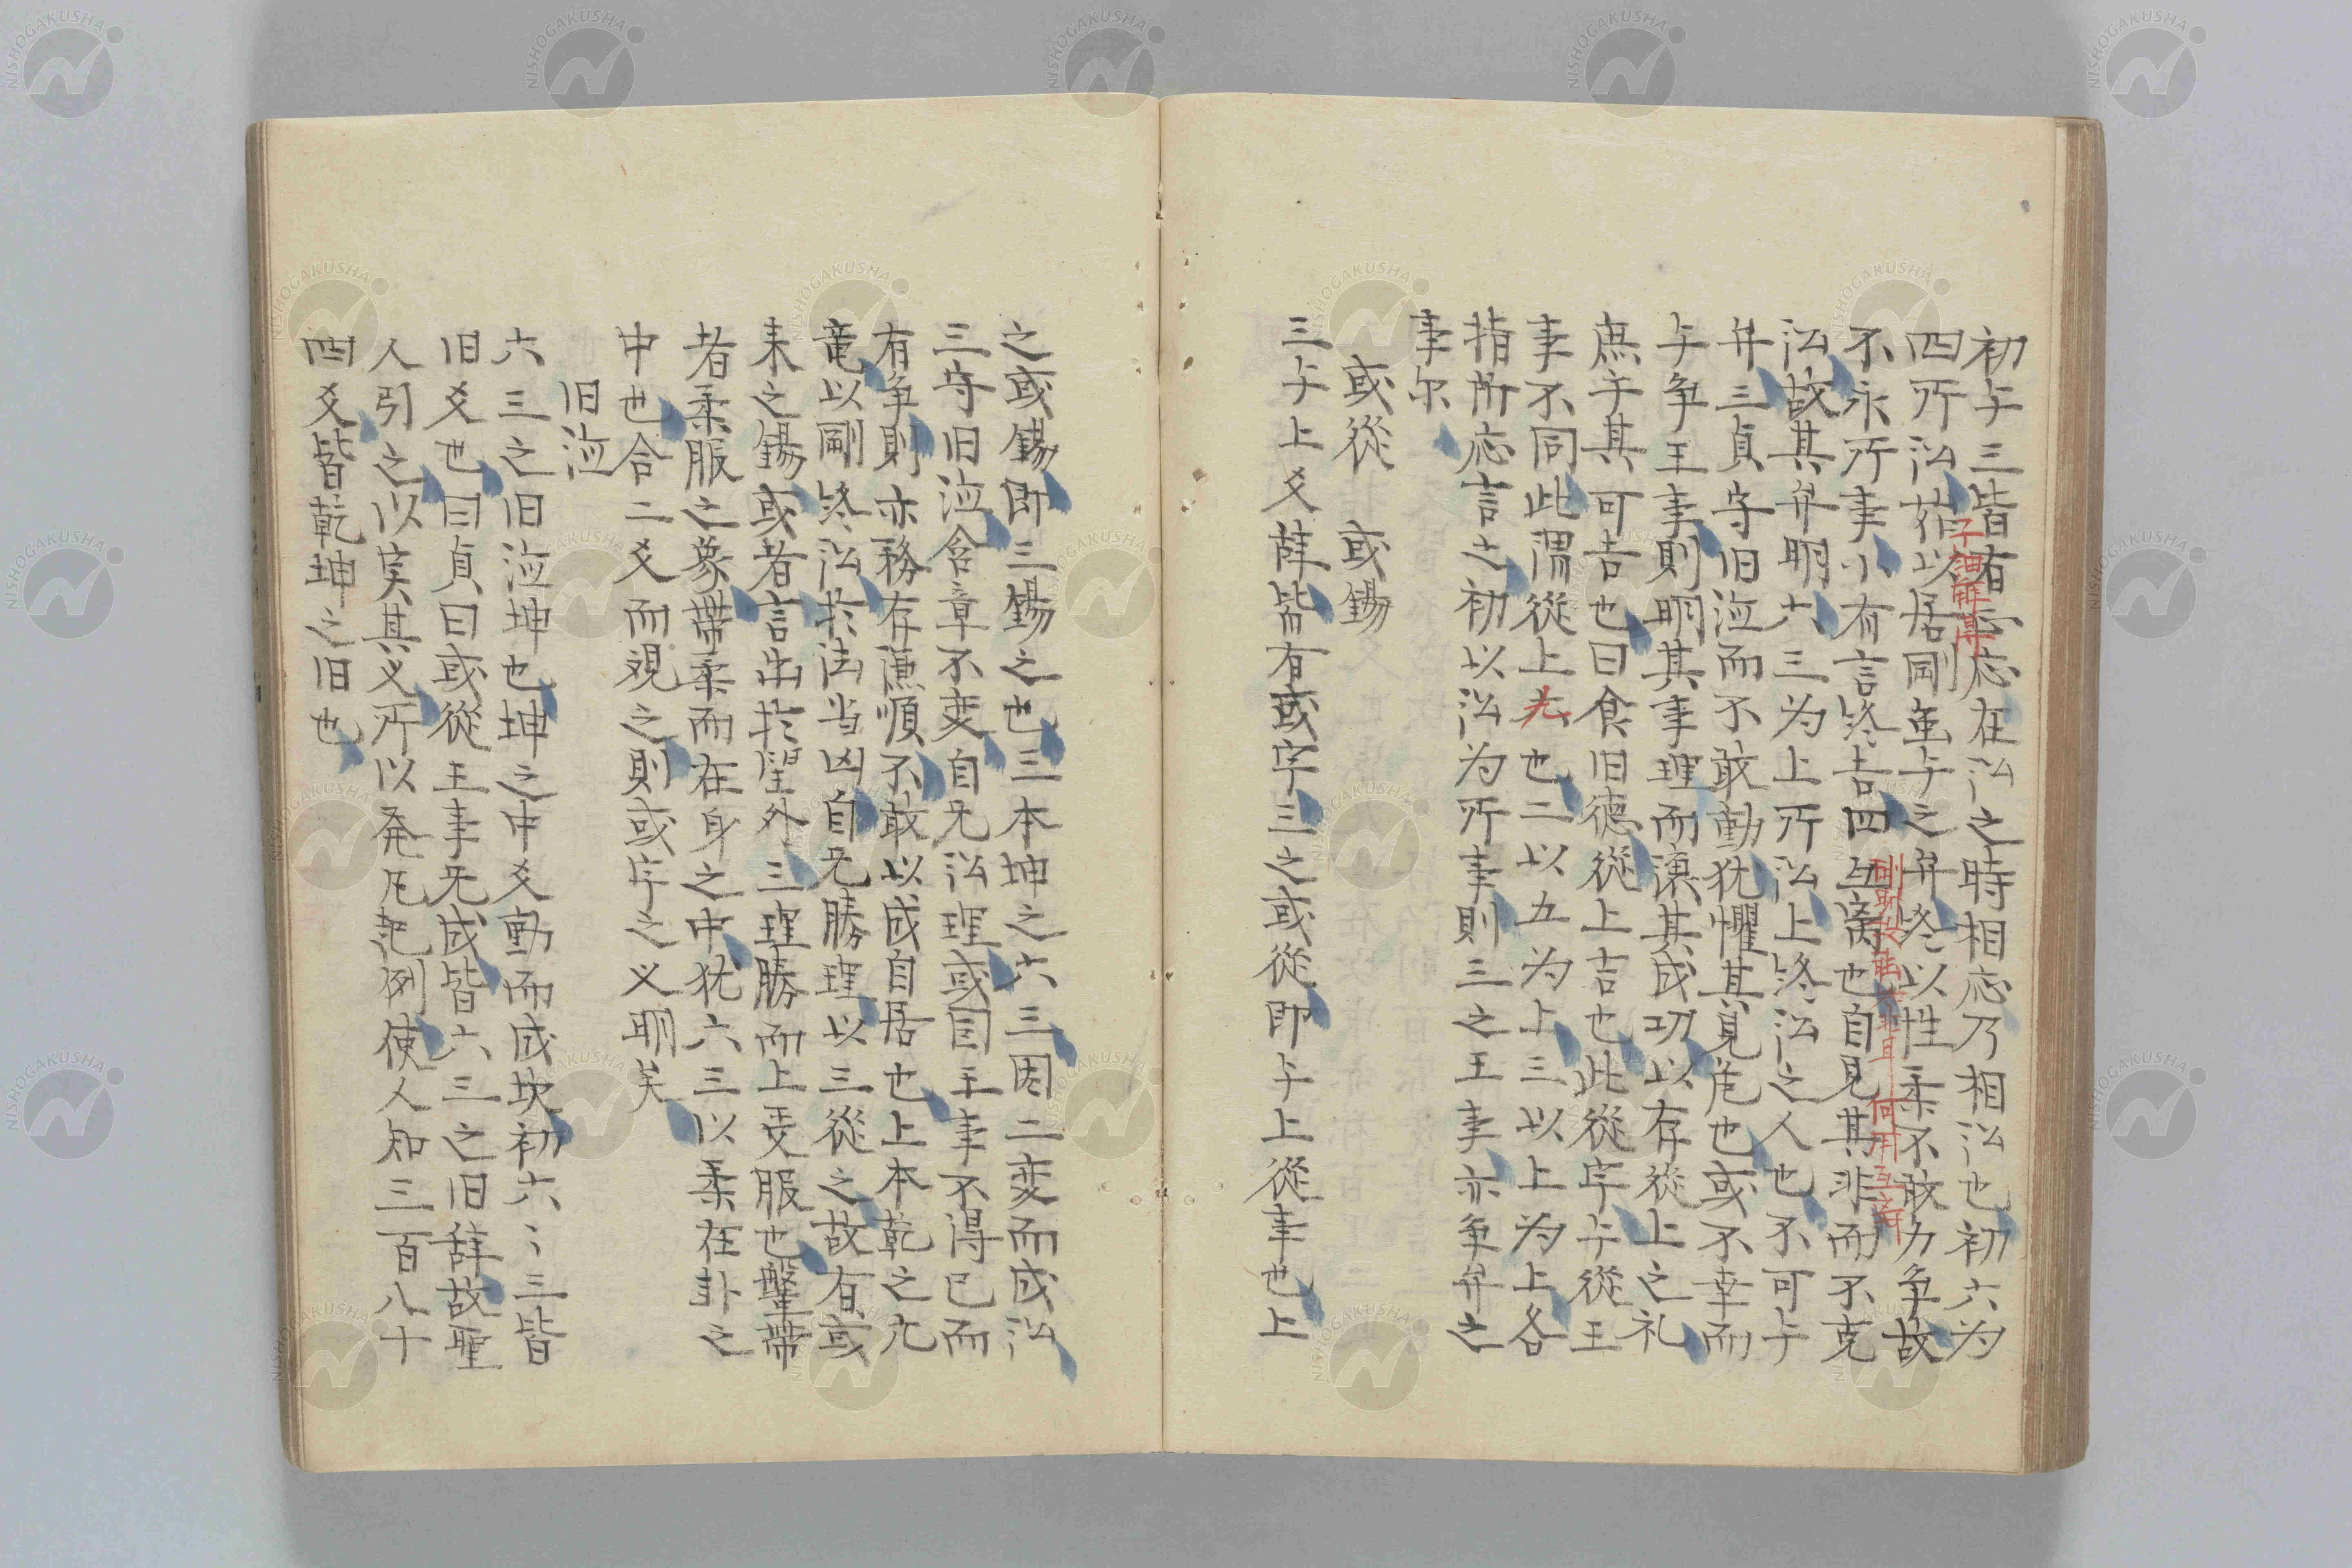 初与三皆有応応在讼之時相応乃相讼也初六为
四所讼茍以居剛虽与之弁终以性柔不敢力争故
不永所事小有言终吉四互离也自見其非而不克
讼故其弁明六三为上所讼上终讼之人也不可与
弁三貞守旧德而不敢動犹懼其見危也或不幸而
与争王事則明其事理而讓其成功以存從上之礼
庶乎其可吉也曰食旧德從上吉也此從字与從王
事不同此謂從上也二以五为上三以上为上各
指所応言之初以讼为所事則三之王事亦争弁之
事尔
或從 或錫
三与上爻辞皆有或字三之或從即与上從事也上
之或錫即三錫之也三本坤之六三因二変而成讼
三守旧德含章不変自无讼理或因王事不得已而
有争則亦務存謙順不敢以成自居也上本乾之亢
竜以剛终讼扵法当凶自无勝理以三從之故有或
来之錫或者言出扵望外三理勝而上受服也鞶帯
者柔服之象帯柔而在身之中犹六三以柔在卦之
中也合二爻而視之則或字之义明矣
旧德
六三之旧德坤也坤之中爻動而成坎初六〻三皆
旧爻也曰貞曰或從王事无成皆六三之旧辞故聖
人引之以実其义所以発凡起例使人知三百八十
四爻皆乾坤之旧也